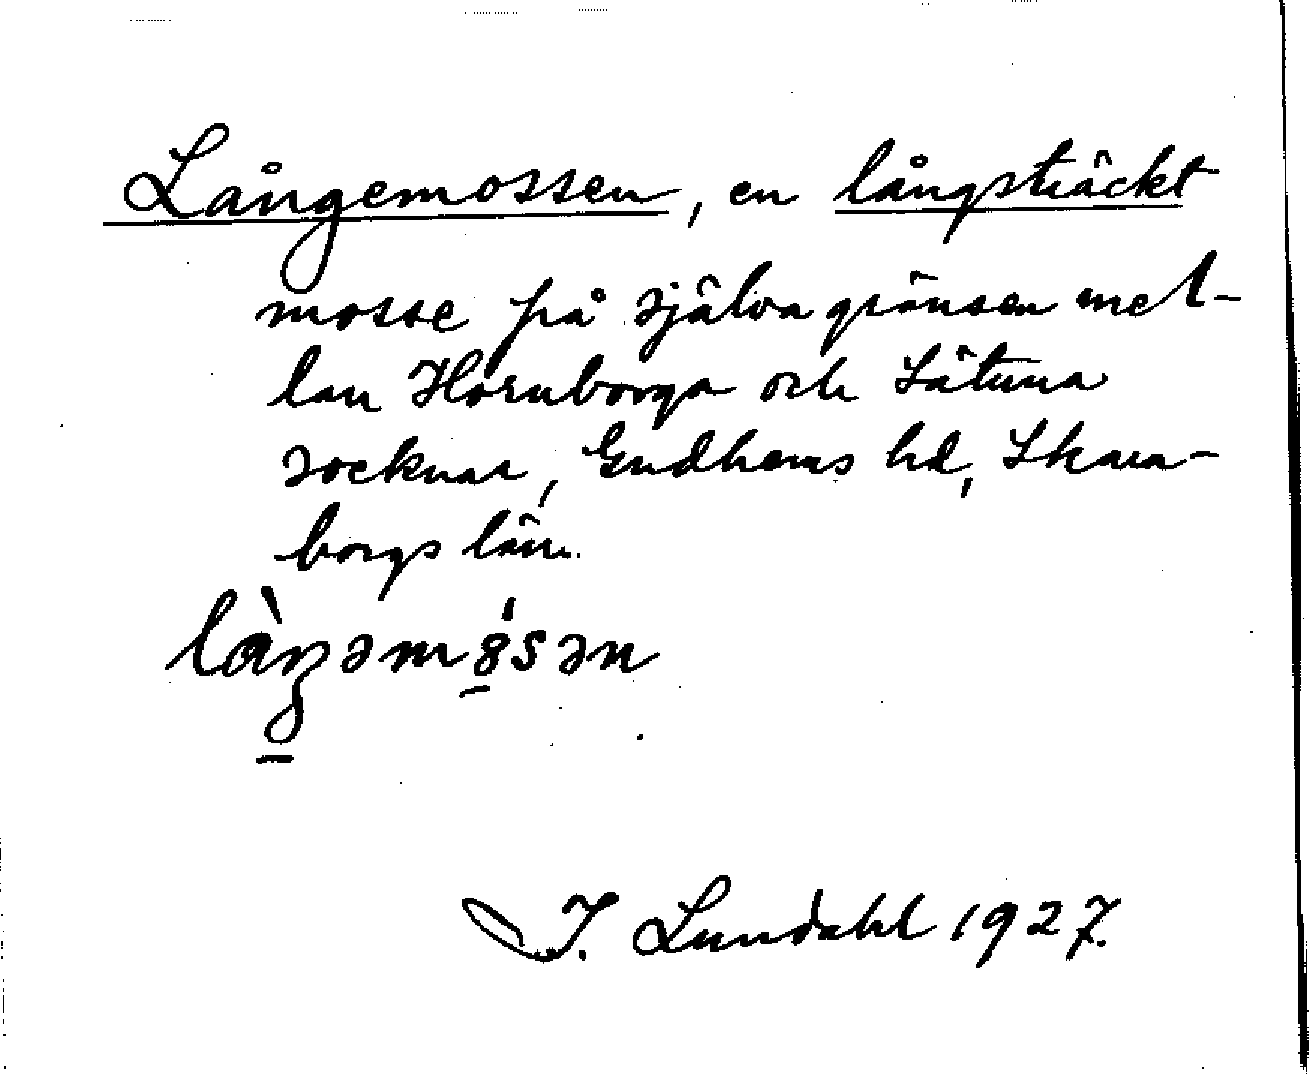 Långemossen, en långsträckt
mosse på själva gränsen mel-
lan Hornborga och Sätuna
socknar, Gudhems hd, Skara-
borgs län.
I. Lundahl 1927.